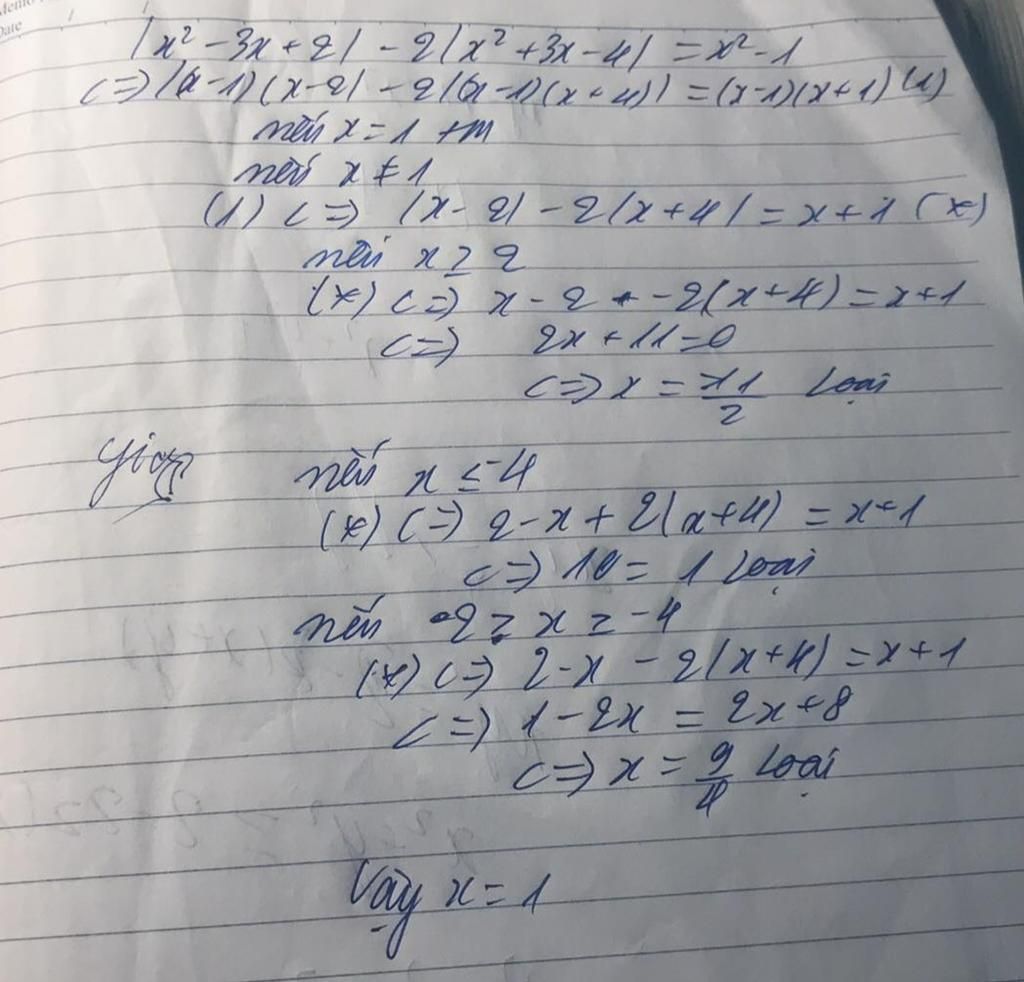 Date
|x² - 3x + 2| - 2|x² + 3x - 4| = x² - 1
<=> |(x-1)(x-2| - 2|(x-1)(x+4)| = (x-1)(x+1) (1)
nếu x = 1 +m
nếu x ≠ 1
(1) <=> |x-2| - 2|x+4| = x+1 (*)
nếu x ≥ 2
(*) <=> x - 2 - 2(x+4) = x+1
<=> 2x + 11 = 0
<=> x = -11/2 loại
nếu x ≤ -4
(*) <=> 2-x + 2(x+4) = x+1
<=> 10 = 1 loại
nếu 2 ≥ x ≥ -4
(*) <=> 2-x - 2(x+4) = x+1
<=> 1-2x = 2x+8
<=> x = 9/4 loại
Vậy x = 1